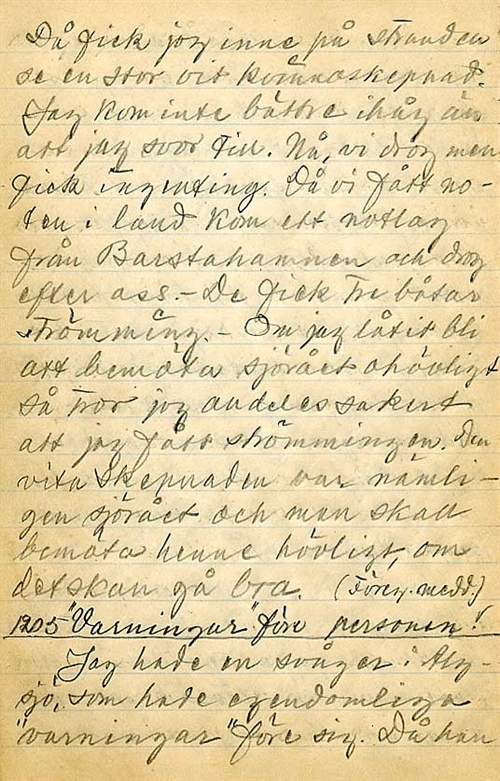 Då fick jag inne på stranden
se en stor vit kvinnoskepnad.
Jag kom inte bättre ihåg än
att jag svor till. Nå, vi drog men
fick ingenting. Då vi fått no-
ten i land kom ett notlag
från Barstahamnen och drog
efter oss. - De fick tre båtar
strömming. - Om jag låtit bli
att bemöta sjörået ohövligt
så tror jag alldeles säkert
att jag fått strömmingen. Den
vita skepnaden var nämli-
gen sjörået och man skall
bemöta henne hövligt, om
det skall gå bra. (Föreg. medd.)
1205 "Varningar" före personen!
Jag hade en svåger i Älg-
sjö, som hade egendomliga
"varningar" före sig. Då han